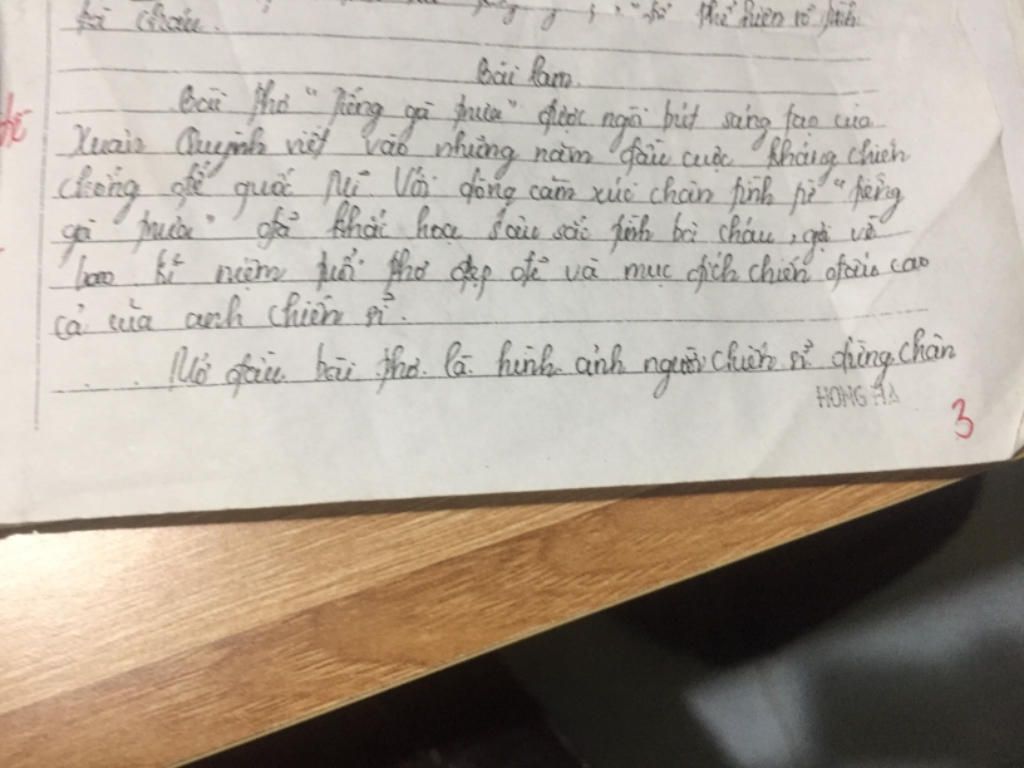 thể hiện rõ tình
bà cháu.
Bài làm.
Bài thơ "Tiếng gà trưa" được ngòi bút sáng tạo của
Xuân Quỳnh viết vào những năm đầu cuộc kháng chiến
chống đế quốc Mĩ. Với dòng cảm xúc chân tình về "tiếng
gà trưa" đã khắc họa sâu sắc tình bà cháu, gợi về
bao kỉ niệm tuổi thơ đẹp đẽ và mục đích chiến đấu cao
cả của anh chiến sĩ.
Mở đầu bài thơ là hình ảnh người chiến sĩ dừng chân
HONG HA
3